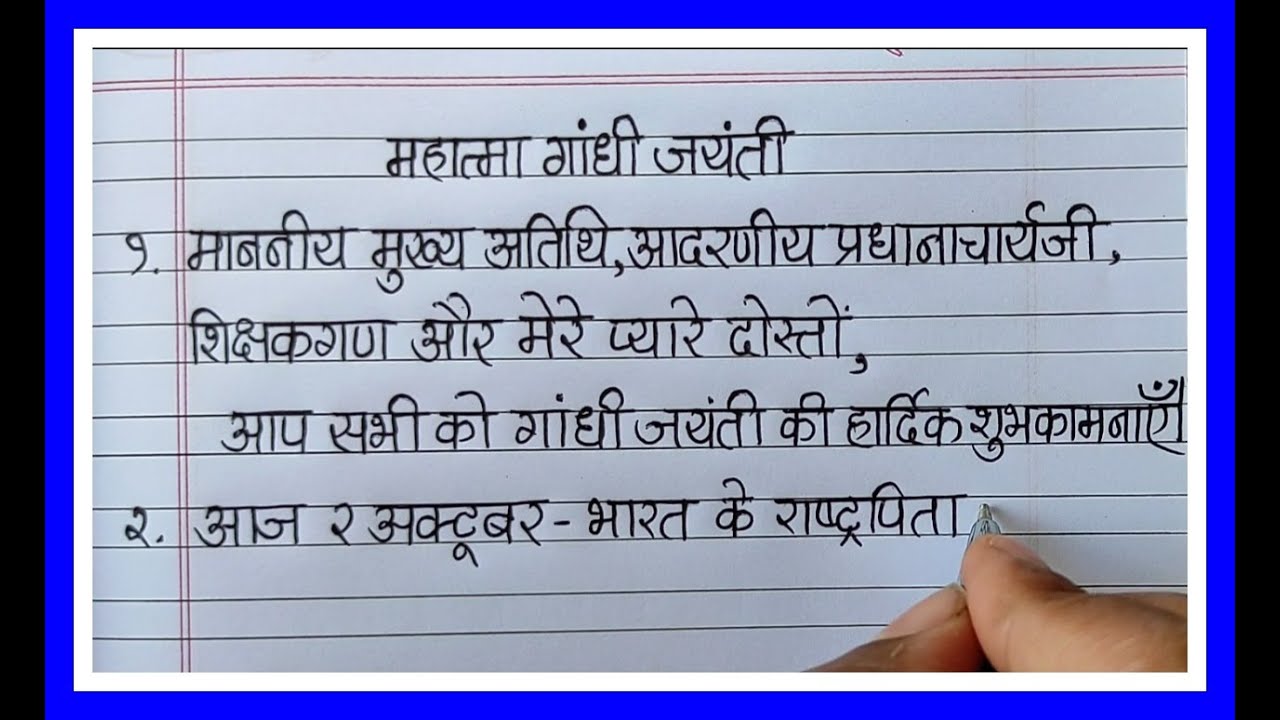 महात्मा गांधी जयंती
१. माननीय मुख्य अतिथि, आदरणीय प्रधानाचार्यजी,
शिक्षकगण और मेरे प्यारे दोस्तों,
आप सभी को गांधी जयंती की हार्दिक शुभकामनाएँ
२. आज २ अक्टूबर - भारत के राष्ट्रपिता